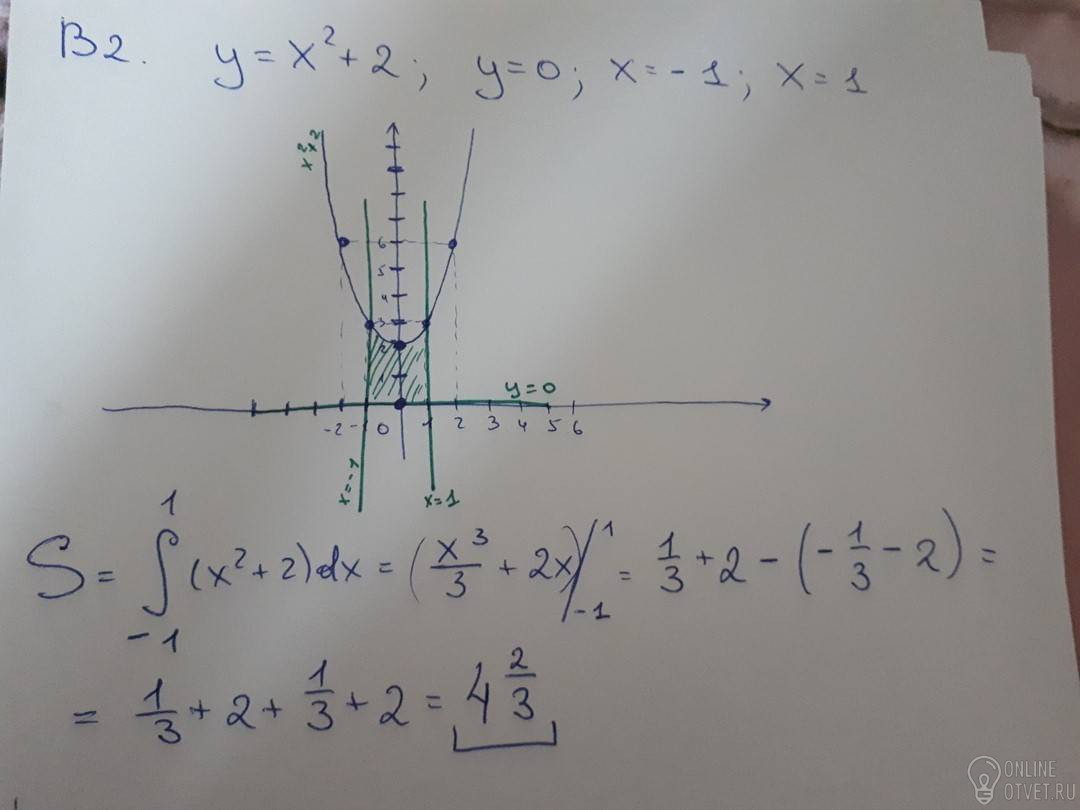 B2. y = x² + 2; y = 0; x = -1; x = 1
6
5
4
3
2
1
y = 0
-2 - 0 1 2 3 4 5 6
x = -1
x = 1
S = ∫₋₁¹ (x² + 2) dx = (x³/3 + 2x) /₋₁¹ = 1/3 + 2 - (-1/3 - 2) =
= 1/3 + 2 + 1/3 + 2 = 4 2/3
ONLINE
OTVET.RU